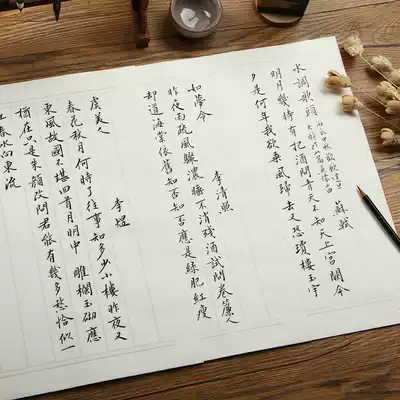 水調歌頭 丙辰中秋歡飲達旦
大醉作此篇兼懷子由
蘇軾
明月幾時有把酒問青天不知天上宮闕今
夕是何年我欲乘風歸去又恐瓊樓玉宇
如夢令
李清照
昨夜雨疏風驟濃睡不消殘酒試問卷簾人
却道海棠依舊知否知否應是綠肥紅瘦
虞美人
李煜
春花秋月何時了往事知多少小樓昨夜又
東風故國不堪回首月明中 雕欄玉砌應
猶在只是朱顏改問君能有幾多愁恰似一
江春水向東流